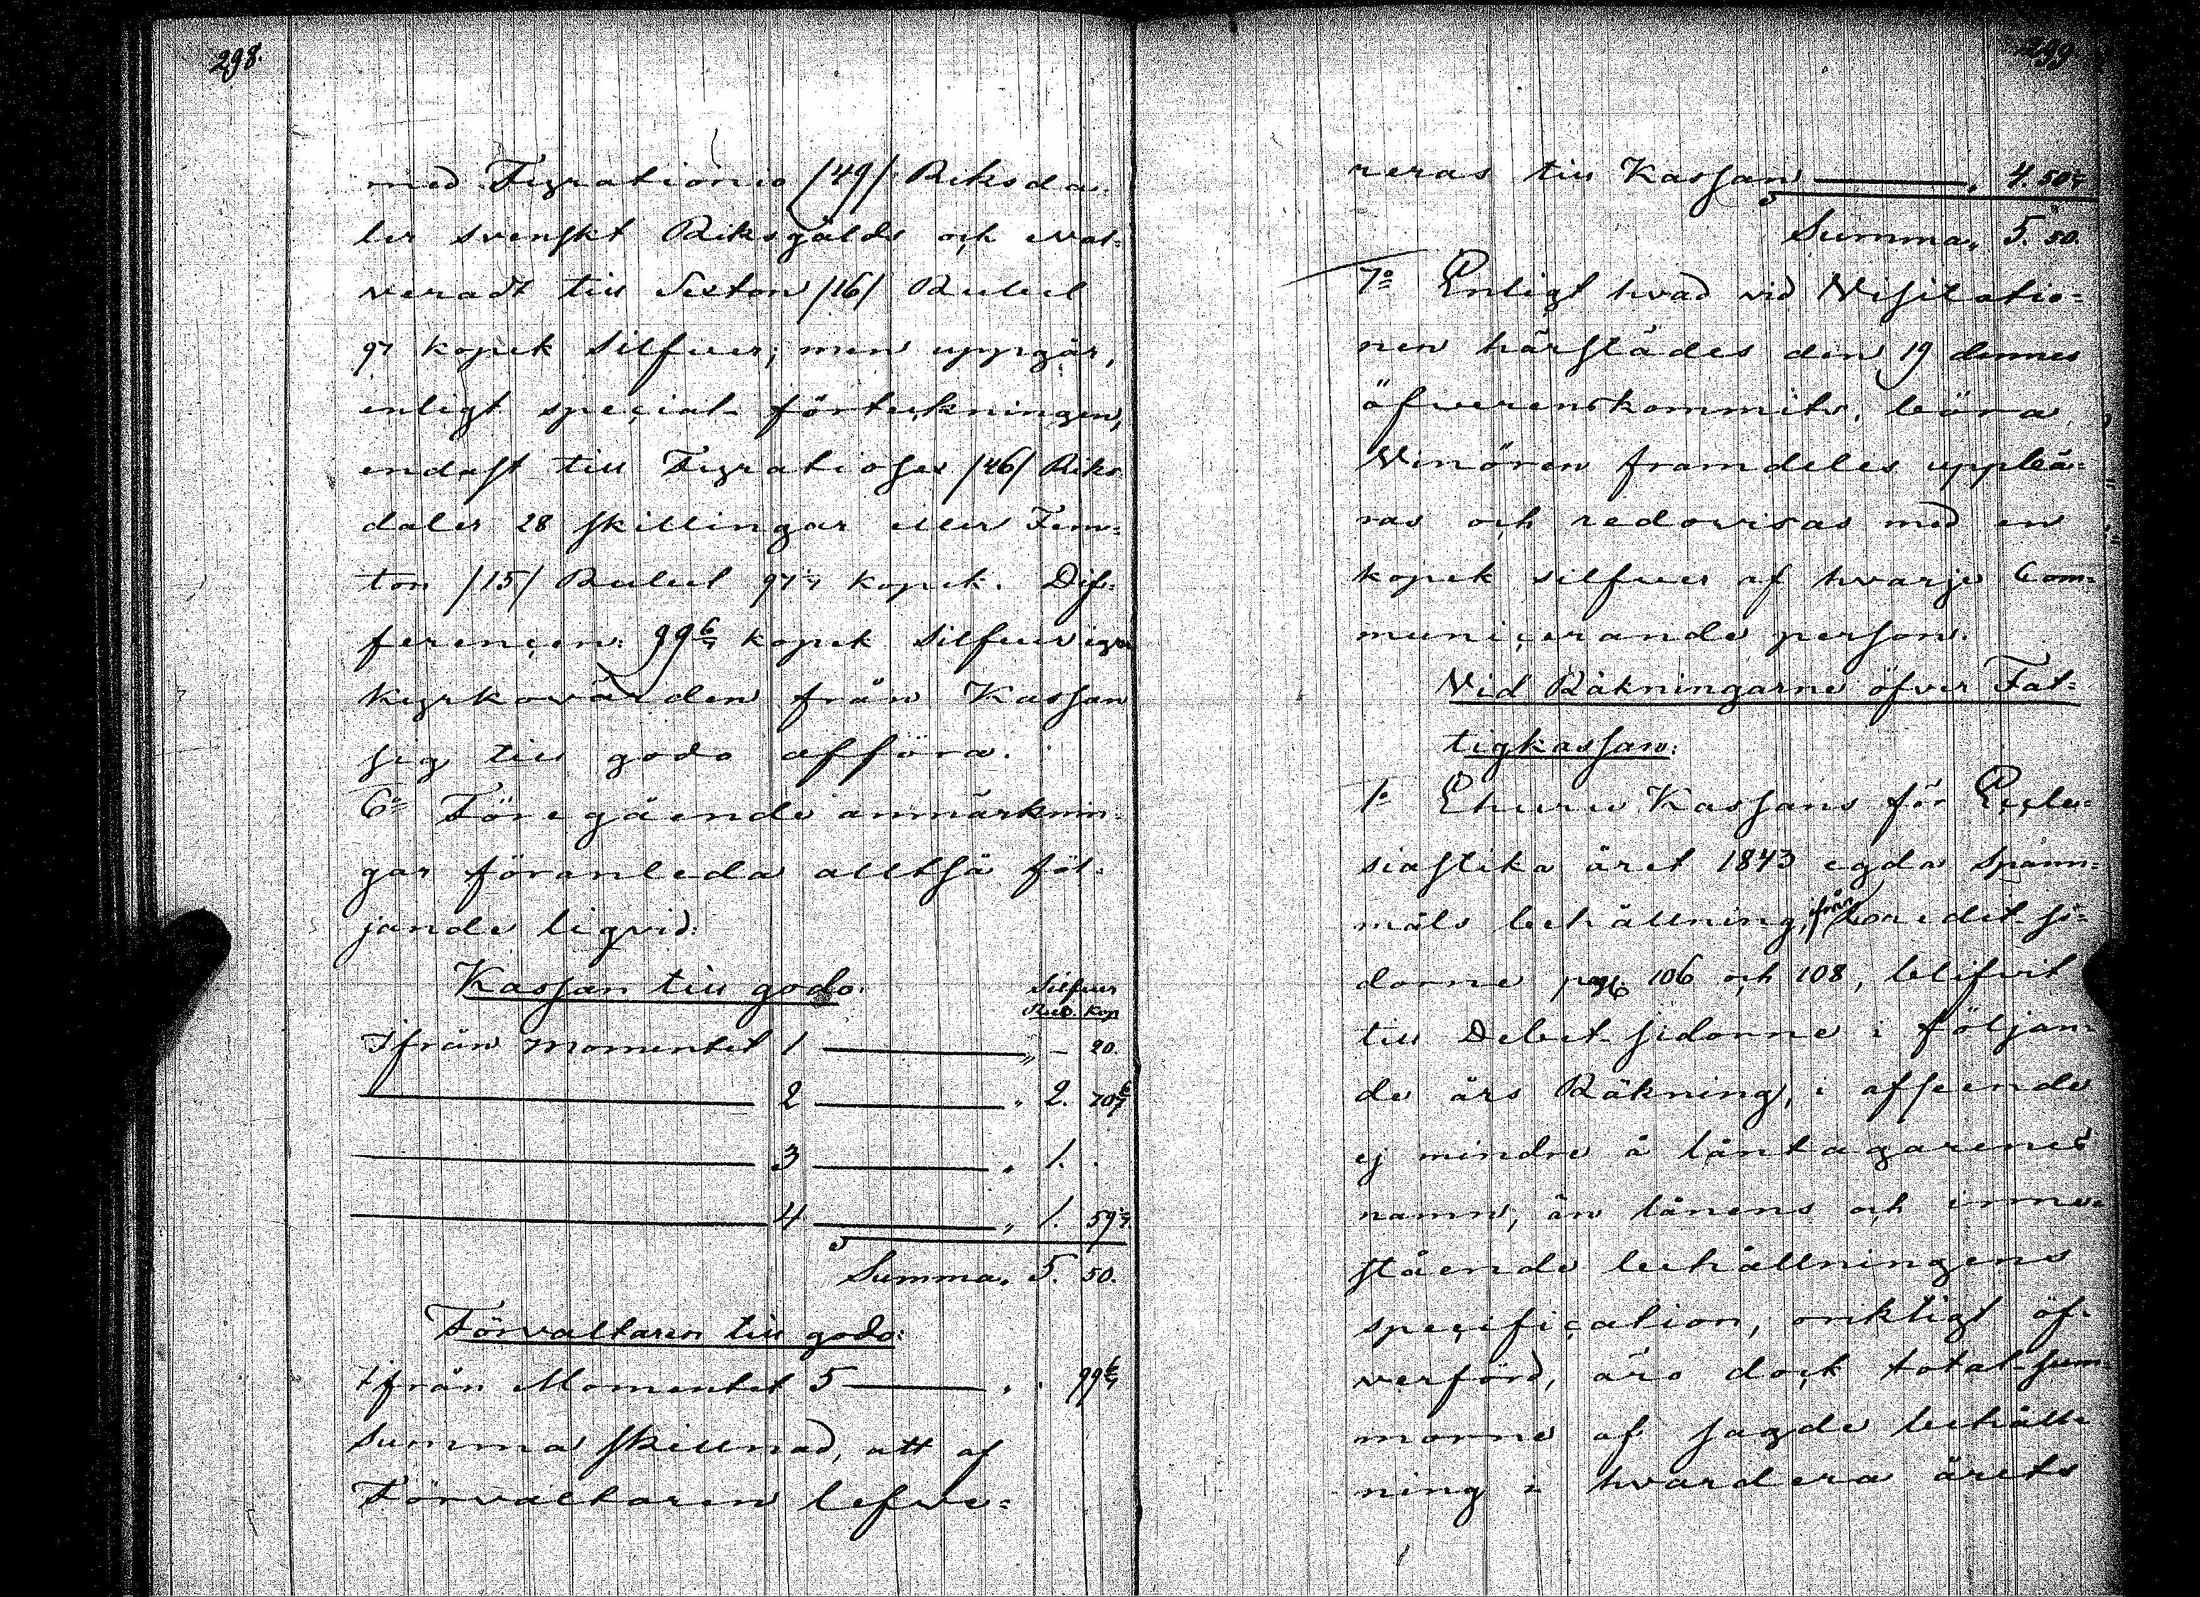 298.
med Fyrationio /49/ Riksda-
ler svenskt Riksgälds och eval-
veradt till Sexton /16/ Rubel
97 kopek Silfver; men uppgår,
enligt special-förteckningen,
endast till Fyratiosex /46/ Riks-
daler 28 skillingar eller Fem-
ton /15/ Rubel 97 1/7 kopek. Dif-
ferencen: 99 6/7 kopek Silfver eger
kyrkovärden från Kassan
sig till godo afföra.
6o Föregående anmärknin-
gar föranleda alltså föl-
jande liqvid:
Kassan till godo:
Silfver
Rub. Kop
Ifrån momentet 1 — „ – 20.
— 2 — „ 2. 70 6/7
— 3 — „ 1. .
— 4 — „ 1. 59 1/7
Summa „ 5. 50.
Förvaltaren till godo:
Ifrån Momentet 5 — „ . 99 6/7
Summa skillnad, att af
Förvaltaren lefve-
299
reras till Kassan — „ 4. 50 1/7
Summa „ 5. 50.
7o Enligt hvad vid Visitatio-
nen härstädes den 19 dennes
öfverenskommits, böra
Vinören framdeles uppbä-
ras och redovisas med en
kopek silfver af hvarje Com-
municerande person.
Vid Räkningarne öfver Fat-
tigkassan:
1o Ehuru Kassans för Eccle-
siastika året 1843 egda Spann-
måls behållning, ifrån Credit si-
dorne pag. 106 och 108, blifvit
till Debet sidorne i följan-
de års Räkning, i afseende
ej mindre å låntagarenes
namn, än lånens och inne-
stående behållningens
specification, oriktigt öf-
verförd, äro dock total-sum-
morne af sagde behåll-
ning i hvardera årets